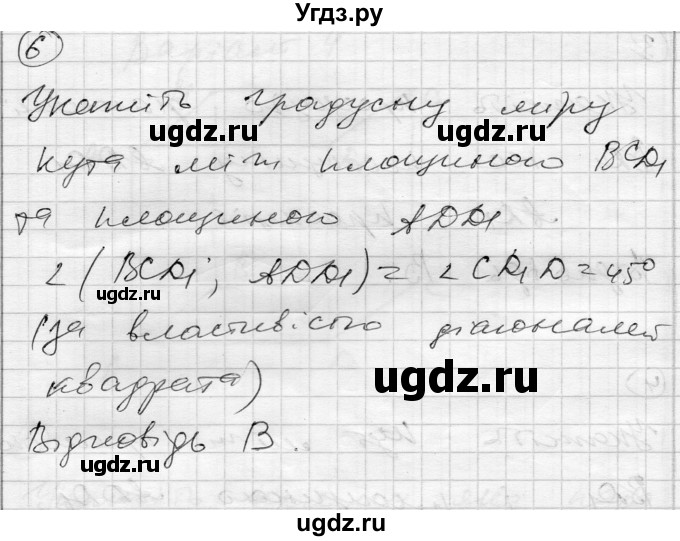 Угдз.ру
6
Укажіть градусну міру
ugdz.ru
ugdz.ru
кута між площиною BCD1
та площиною ADD1.
∠(BCD1; ADD1) = ∠CD1D = 45°
ugdz.ru
(за властивістю діагоналей
ugdz.ru
квадрата)
Відповідь В.
ugdz.ru
ugdz.ru